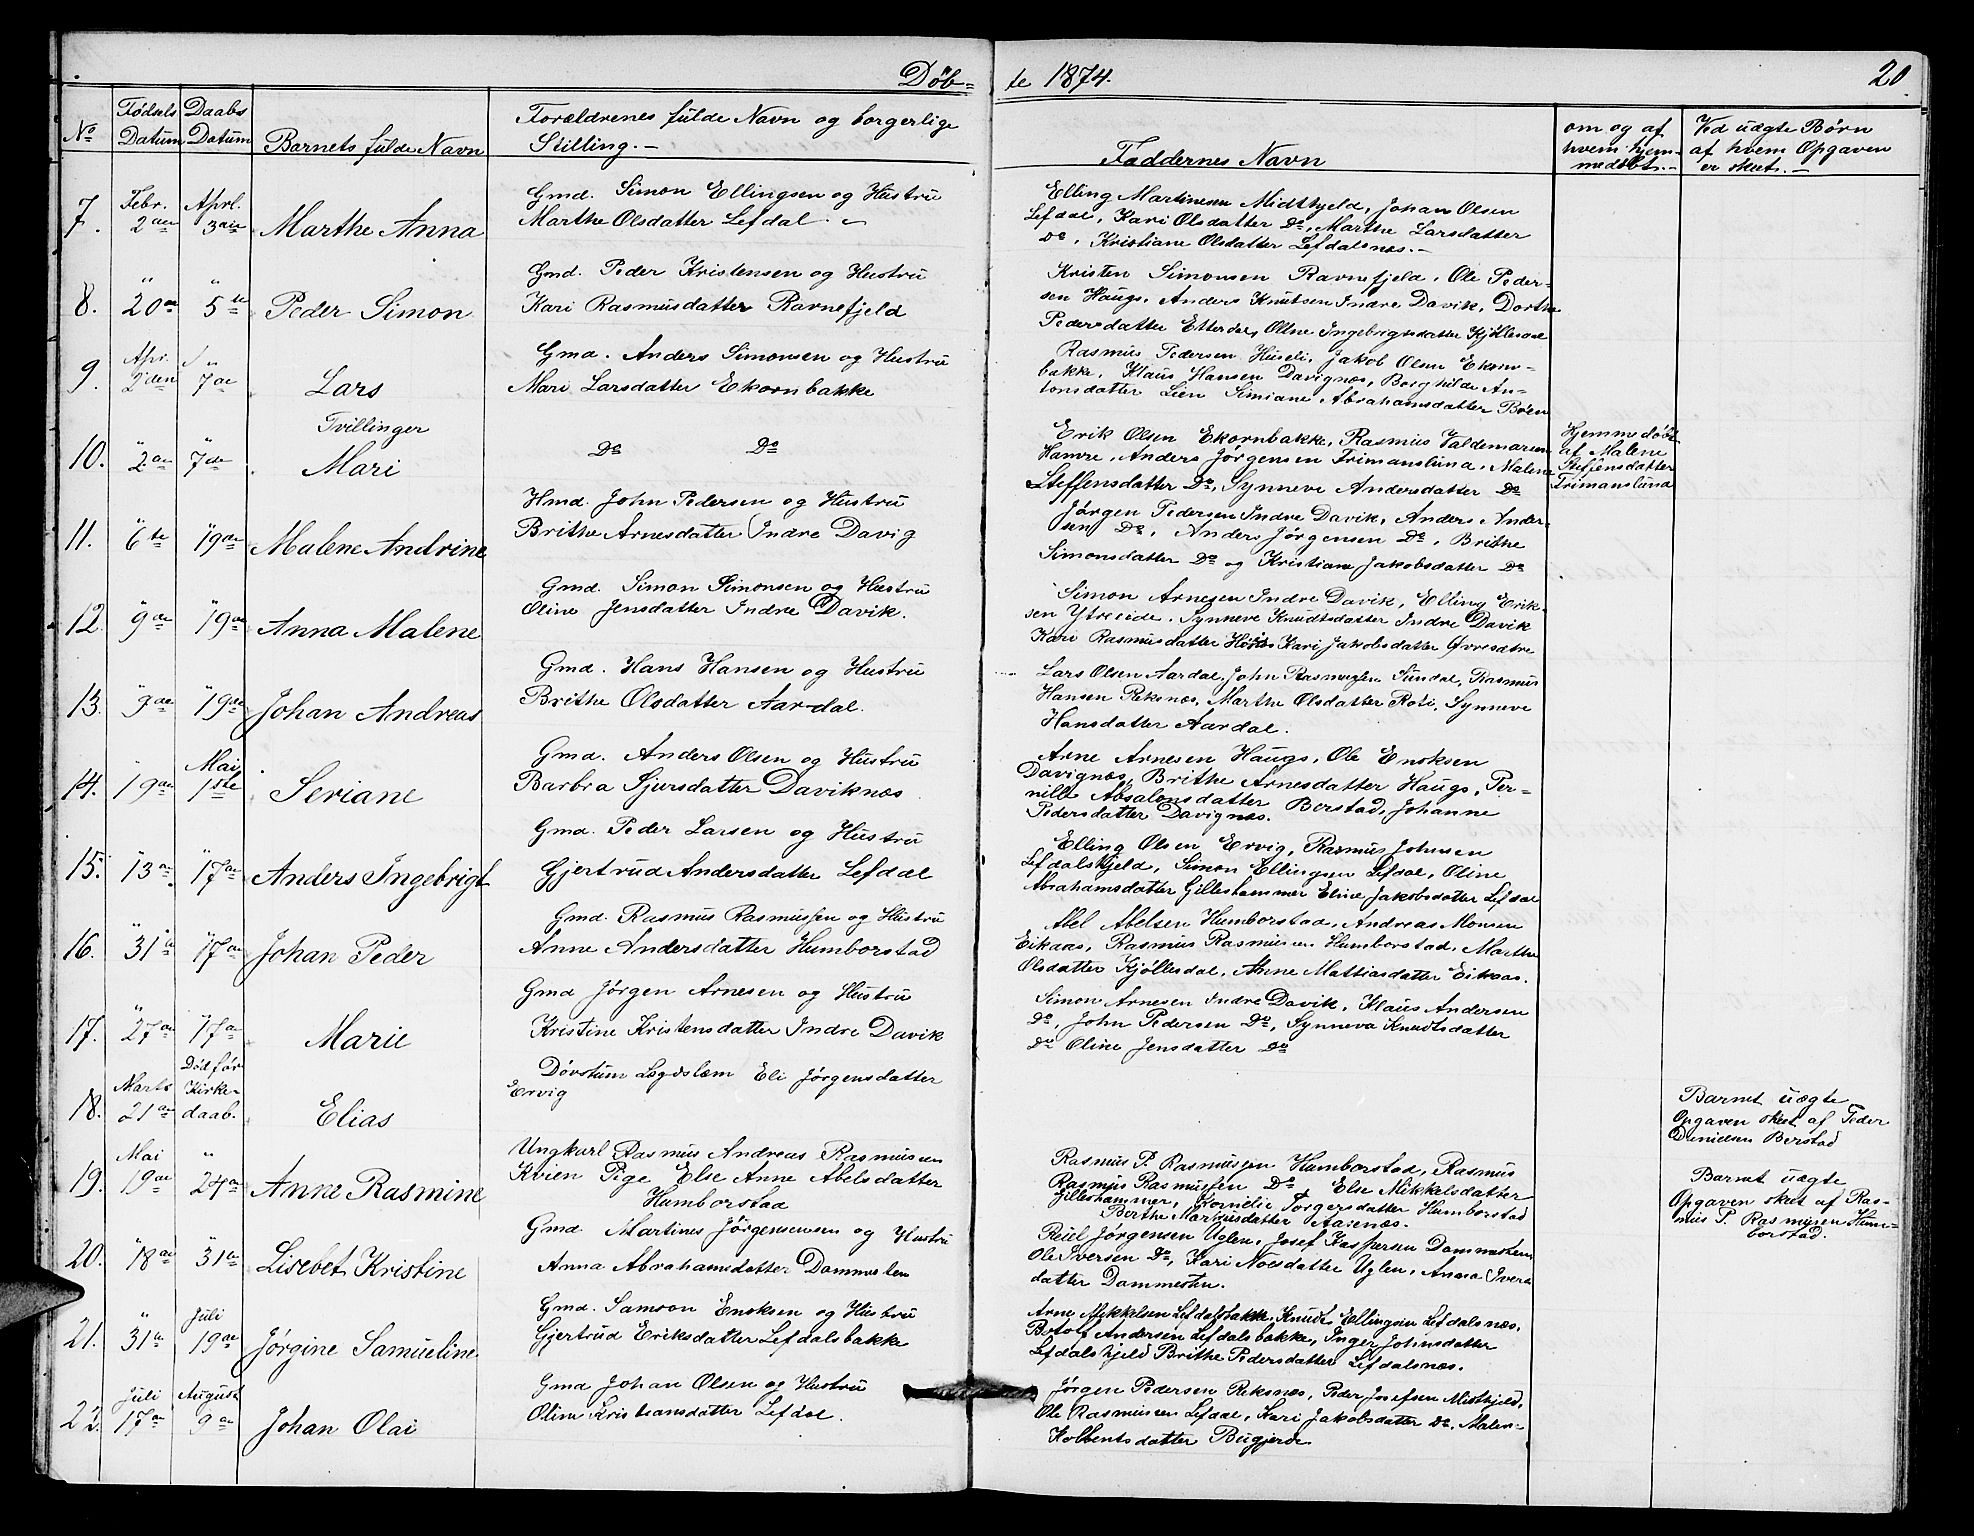 Døb-
te 1874.
20.
No
Fødsels Datum
Daabs Datum
Barnets fulde Navn
Forældrenes fulde Navn og borgerlige
Stilling. -
Faddernes Navn
om og af
hvem hjem-
medøbt. -
Ved uægte Børn
af hvem Opgaven
er skeet. -
7. Febr. 2den Aprl. 3die Marthe Anna
Gmd. Simon Ellingsen og Hustru
Marthe Olsdatter Lefdal. -
Elling Martinesen Midthjeld, Johan Olsen
Lefdal, Kari Olsdatter Do, Marthe Larsdatter
Do, Kristiane Olsdatter Lefdalsnæs. -
8. " 20de " 5te Peder Simon
Gmd. Peder Kristensen og Hustru
Kari Rasmusdatter Ravnefjeld
Kristen Simonsen Ravnefjeld, Ole Peder-
sen Haugs, Anders Knutsen Indre Davik, Dorthe
Pedersdatter Etterdal, Oline Ingebrigtsdatter Kjøllesdal
9. Apr. 2den " 7de Lars
Gmd. Anders Simonsen og Hustru
Mari Larsdatter Ekornbakke
Rasmus Pedersen Huseli, Jakob Olsen Ekorn-
bakke, Klaus Hansen Davignæs, Borghilde An-
tonsdatter Lien Simiane Abrahamsdatter Børen
Tvillinger
10. " 2den " 7de Mari
Do Do
Erik Olsen Ekornbakke, Rasmus Valdemarsen
Hamre, Anders Jørgensen Frimanslund, Malene
Steffensdatter Do, Synneve Andersdatter Do
Hjemmedøbt
af Malene
Steffensdatter
Frimanslund
11. " 6te " 19de Malene Andrine
Hmd. John Pedersen og Hustru
Brithe Arnesdatter Indre Davig
Jørgen Pedersen Indre Davik, Anders Ander-
sen Do, Anders Jørgensen Do, Brithe
Simonsdatter Do og Kristiane Jakobsdatter Do
12. " 9de " 19de Anna Malene
Gmd. Simon Simonsen og Hustru
Oline Jensdatter Indre Davik.
Simon Arnesen Indre Davik, Elling Erik-
sen Ytreeide, Synneve Knudtsdatter Indre Davik
Kari Rasmusdatter Kari Jakobsdatter Øvresætre
13. " 9de " 19de Johan Andreas
Gmd. Hans Hansen og Hustru
Brithe Olsdatter Aardal.
Lars Olsen Aardal, John Rasmussen Sundal, Rasmus
Hansen Reksnæs, Marthe Olsdatter Roti, Synneve
Hansdatter Aardal.
14. 19de Mai 1ste Seriane
Gmd. Anders Olsen og Hustru
Barbra Sjursdatter Daviknæs
Arne Arnesen Haugs, Ole Enoksen
Davignæs, Brithe Arnesdatter Haugs, Per-
nille Absalonsdatter Berstad, Johanne
Pedersdatter Davignæs.
15. " 13de " 17de Anders Ingebrigt
Gmd. Peder Larsen og Hustru
Gjertrud Andersdatter Lefdal
Elling Olsen Ervig, Rasmus Johnsen
Lefdalshjeld, Simon Ellingsen Lefdal, Oline
Abrahamsdatter Gilleshammer Eline Jakobsdatter Lefdal
16. " 31te " 17de Johan Peder
Gmd. Rasmus Rasmussen og Hustru
Anne Andersdatter Humborstad
Abel Abelsen Humborstad, Andreas Monsen
Eikaas, Rasmus Rasmussen Humborstad, Marthe
Olsdatter Kjøllesdal, Anne Mattiasdatter Eikaas.
17. " 27de " 17de Marie
Gmd Jørgen Arnesen og Hustru
Kristine Kristensdatter Indre Davik
Simon Arnesen Indre Davik, Klaus Andersen
Do, John Pedersen Do, Synneva Knudtsdatter
Do Oline Jensdatter Do
18. Marts 21de Død før Kirke-daab. Elias
Døvstum Lægdslæm Eli Jørgensdatter
Ervig
Barnet uægte
Opgaven skeet af Peder
Danielsen Berstad
19. Mai 19de " 24de Anne Rasmine
Ungkarl Rasmus Andreas Rasmussen
Kvien Pige Else Anne Abelsdatter
Humborstad
Rasmus P. Rasmussen Humborstad, Rasmus
Rasmus Rasmussen Do Else Mikkelsdatter
Gilleshammer, Kornelie Torgersdatter Humborstad
Berthe Markusdatter Aarenæs.
Barnet uægte
Opgaven skeet af Ras-
mus P. Rasmussen Hum-
borstad.
20. " 18de " 31te Lisebet Kristine
Gmd. Martinus Jørgensensen og Hustru
Anna Abrahamsdatter Dammesten
Reiel Jørgensen Uglen, Josef Kaspersen Dammesten
Ole Iversen Do, Kari Noesdatter Uglen, Anna Ivers
datter Dammesten.
21. " 31te Juli 19de Jørgine Samueline
Gmd. Samson Enoksen og Hustru
Gjertrud Eriksdatter Lefdalsbakke
Arne Mykkelsen Lefdalsbakke, Knudt Ellingsen Lefdalsnæs,
Botolf Andersen Lefdalsbakke, Inger Johnsdatter
Lefdalshjeld Brithe Pedersdatter Lefdalsnæs.
22. Juli 17de August 9de Johan Olai
Gmd Johan Olsen og Hustru
Oline Kristiansdatter Lefdal.
Jørgen Pedersen Reksnæs, Peder Josefsen Midthjeld,
Ole Rasmussen Lefdal, Kari Jakobsdatter Do, Malen-
Kolbentsdatter Bugjerde